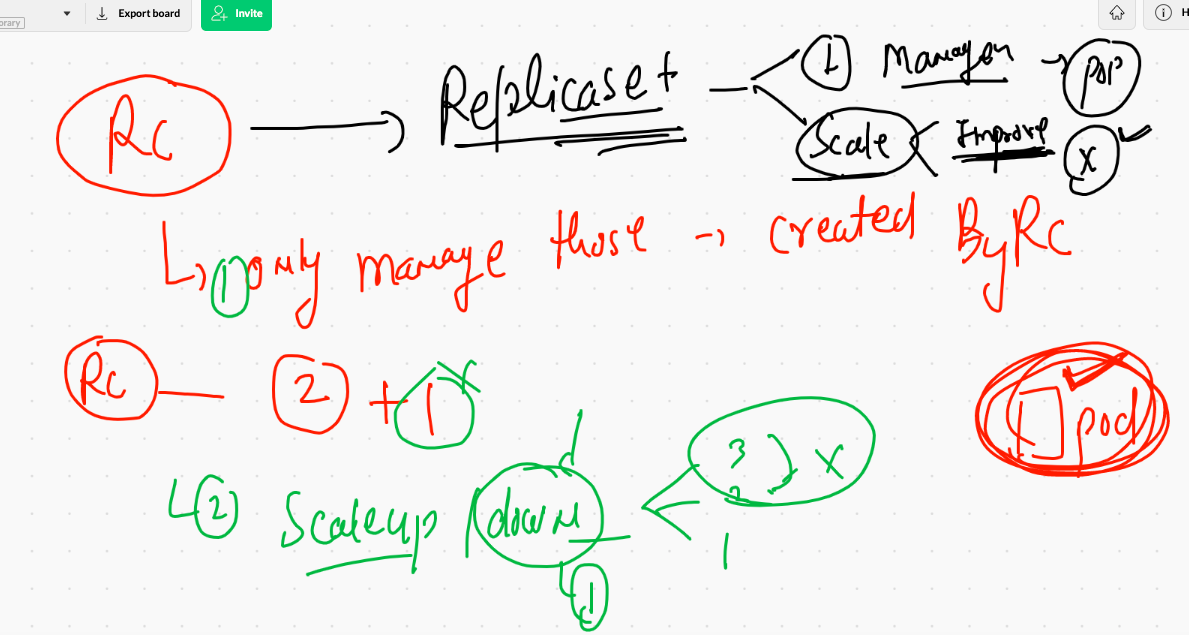 brary
Export board
Invite
H
Rc → Replicaset
1 Manager → POP
Scale Improve x
↳ 1 only manage those → created By Rc
Rc — 2 + 1 x
1 pod
↳ 2 Scaleup / down
3
2
x
1
1